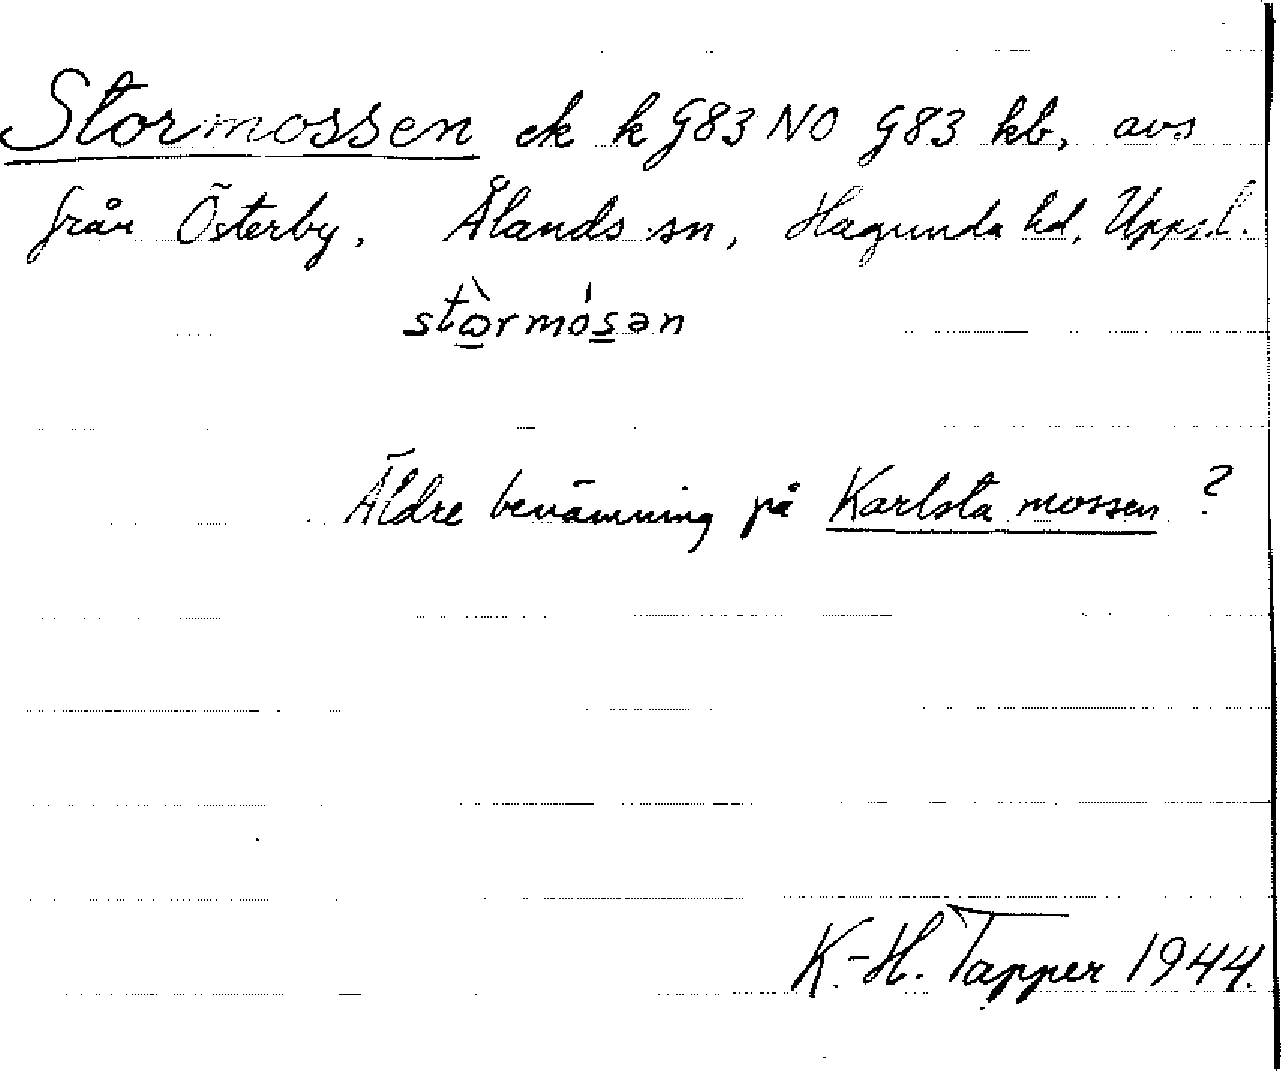 Stormossen ek k G83 NO G83 kb, avs
från Österby, Ålands sn, Hagunda hd, Uppsl.
stòrmósən
Äldre benämning på Karlsta mossen ?
K.-H. Tapper 1944.